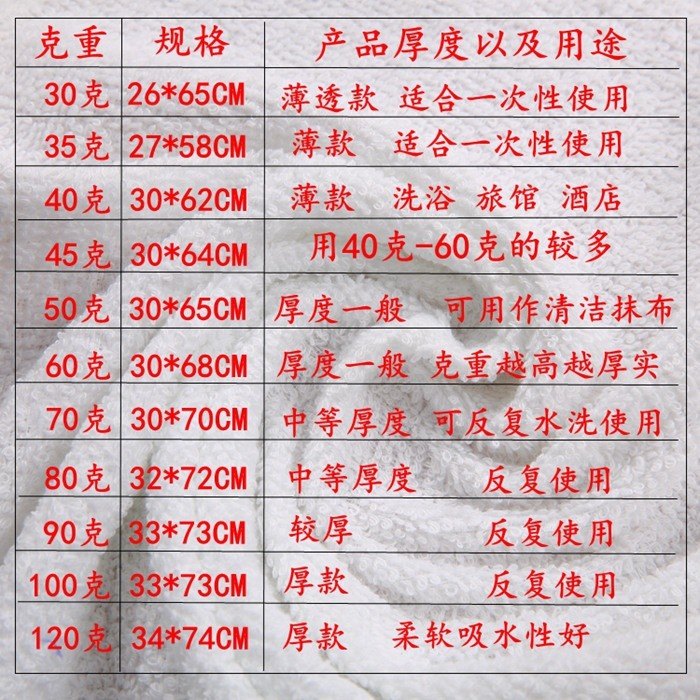 克重 规格 产品厚度以及用途
30克 26*65CM 薄透款 适合一次性使用
35克 27*58CM 薄款 适合一次性使用
40克 30*62CM 薄款 洗浴 旅馆 酒店
45克 30*64CM 用40克-60克的较多
50克 30*65CM 厚度一般 可用作清洁抹布
60克 30*68CM 厚度一般 克重越高越厚实
70克 30*70CM 中等厚度 可反复水洗使用
80克 32*72CM 中等厚度 反复使用
90克 33*73CM 较厚 反复使用
100克 33*73CM 厚款 反复使用
120克 34*74CM 厚款 柔软吸水性好